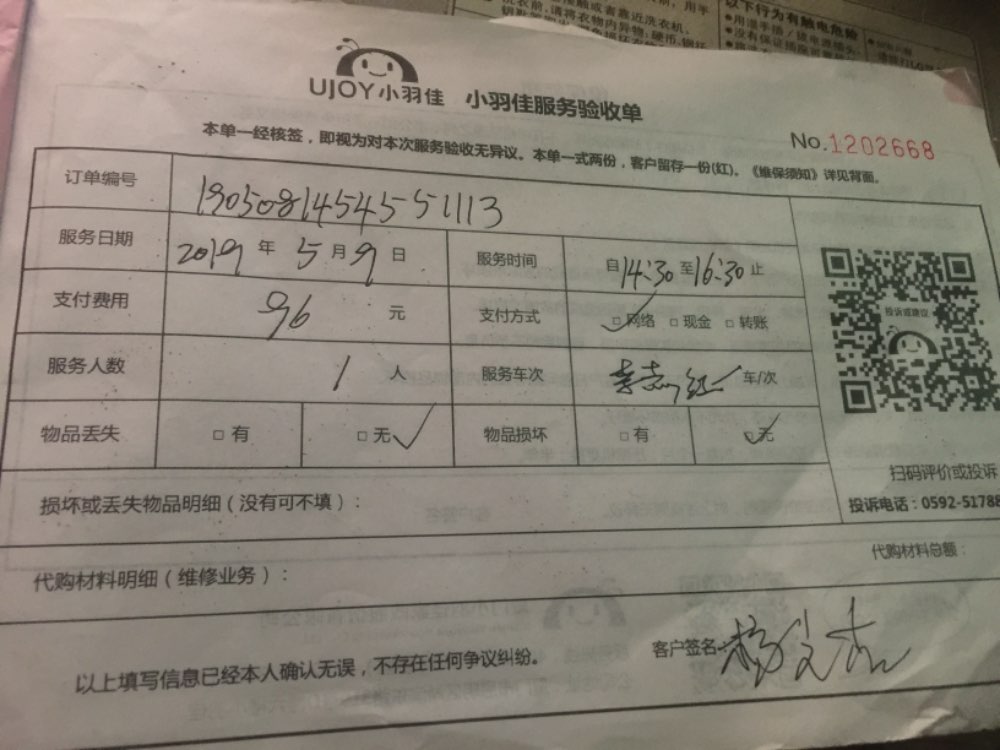 以下行为有触电危险
UJOY小羽佳 小羽佳服务验收单
No.1202668
本单一经核签，即视为对本次服务验收无异议。本单一式两份，客户留存一份(红)。《维保须知》详见背面。
订单编号 190508145455113
服务日期 2019 年 5 月 9 日 服务时间 自 14:30 至 16:30 止
支付费用 96 元 支付方式 □网络 □现金 □转账
投诉或建议
服务人数 1 人 服务车次 李志红 车/次
物品丢失 □有 □无 物品损坏 □有 □无
扫码评价或投诉
损坏或丢失物品明细（没有可不填）：
投诉电话：0592-51788
代购材料总额：
代购材料明细（维修业务）：
客户签名
以上填写信息已经本人确认无误，不存在任何争议纠纷。